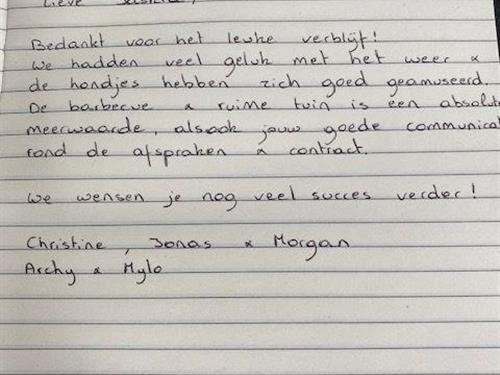 Lieve
Bedankt voor het leuke verblijf!
We hadden veel geluk met het weer &
de hondjes hebben zich goed geamuseerd.
De barbecue & ruime tuin is een absolute
meerwaarde, alsook jouw goede communicat
rond de afspraken & contract.
We wensen je nog veel succes verder!
Christine, Jonas & Morgan
Archy & Mylo